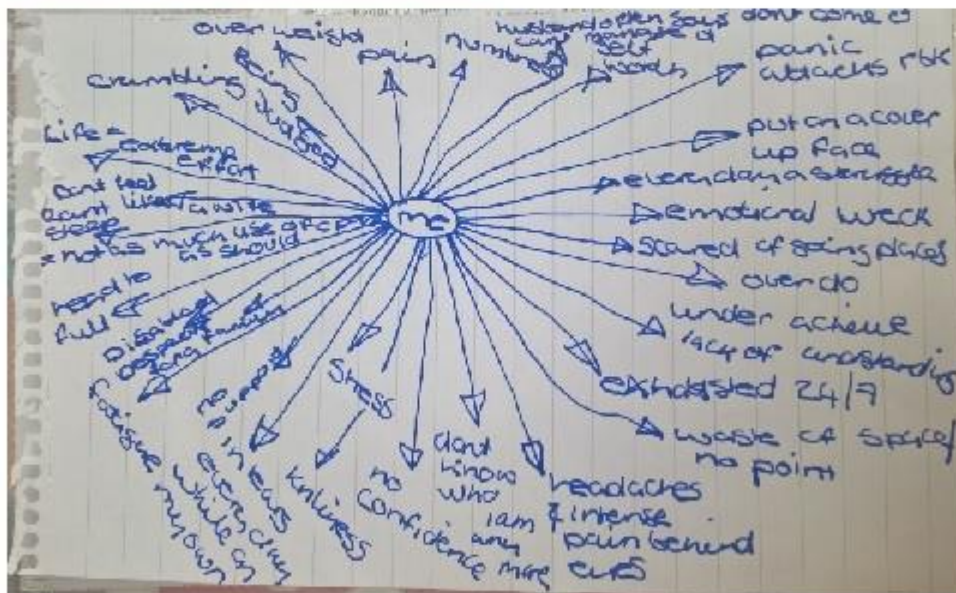 over weight
pain
numbness
husband often says dont come if
cant manage it
self
words
panic
attacks risk
put on a cover
up face
every day a struggle
emotional wreck
scared of going places
over do
under achieve
lack of understanding
exhausted 24/7
waste of space/
no point
headaches
& intense
pain behind
ears
dont
know
who
i am
any
more
no
confidence
stress
lonliness
no support
in tears
every day
while on
my own
fatigue
head to
full
not as much use of
as should
dont feel
like a wife
cant
sleep
Life =
extreme
effort
crumbling
being
judged
me